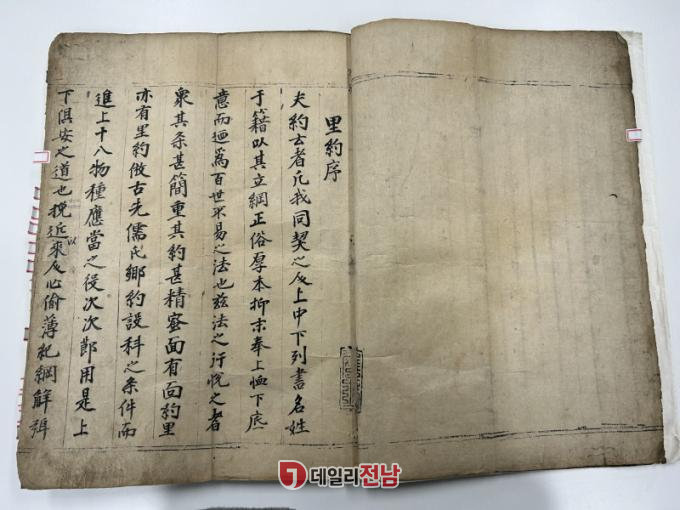 里約序
夫約云者凡我同契之民上中下列書名姓
于籍以其立綱正俗厚本抑末奉上恤下底
意而迺爲百世不易之法也玆法之行悅之者
衆其条甚簡重其約甚精密面有面約里
亦有里約倣古先儒氏鄕約設科之条件而
進上十八物種應當之役次次節用是上
下俱安之道也挽近以來民心偷薄紀綱解弛
데일리전남